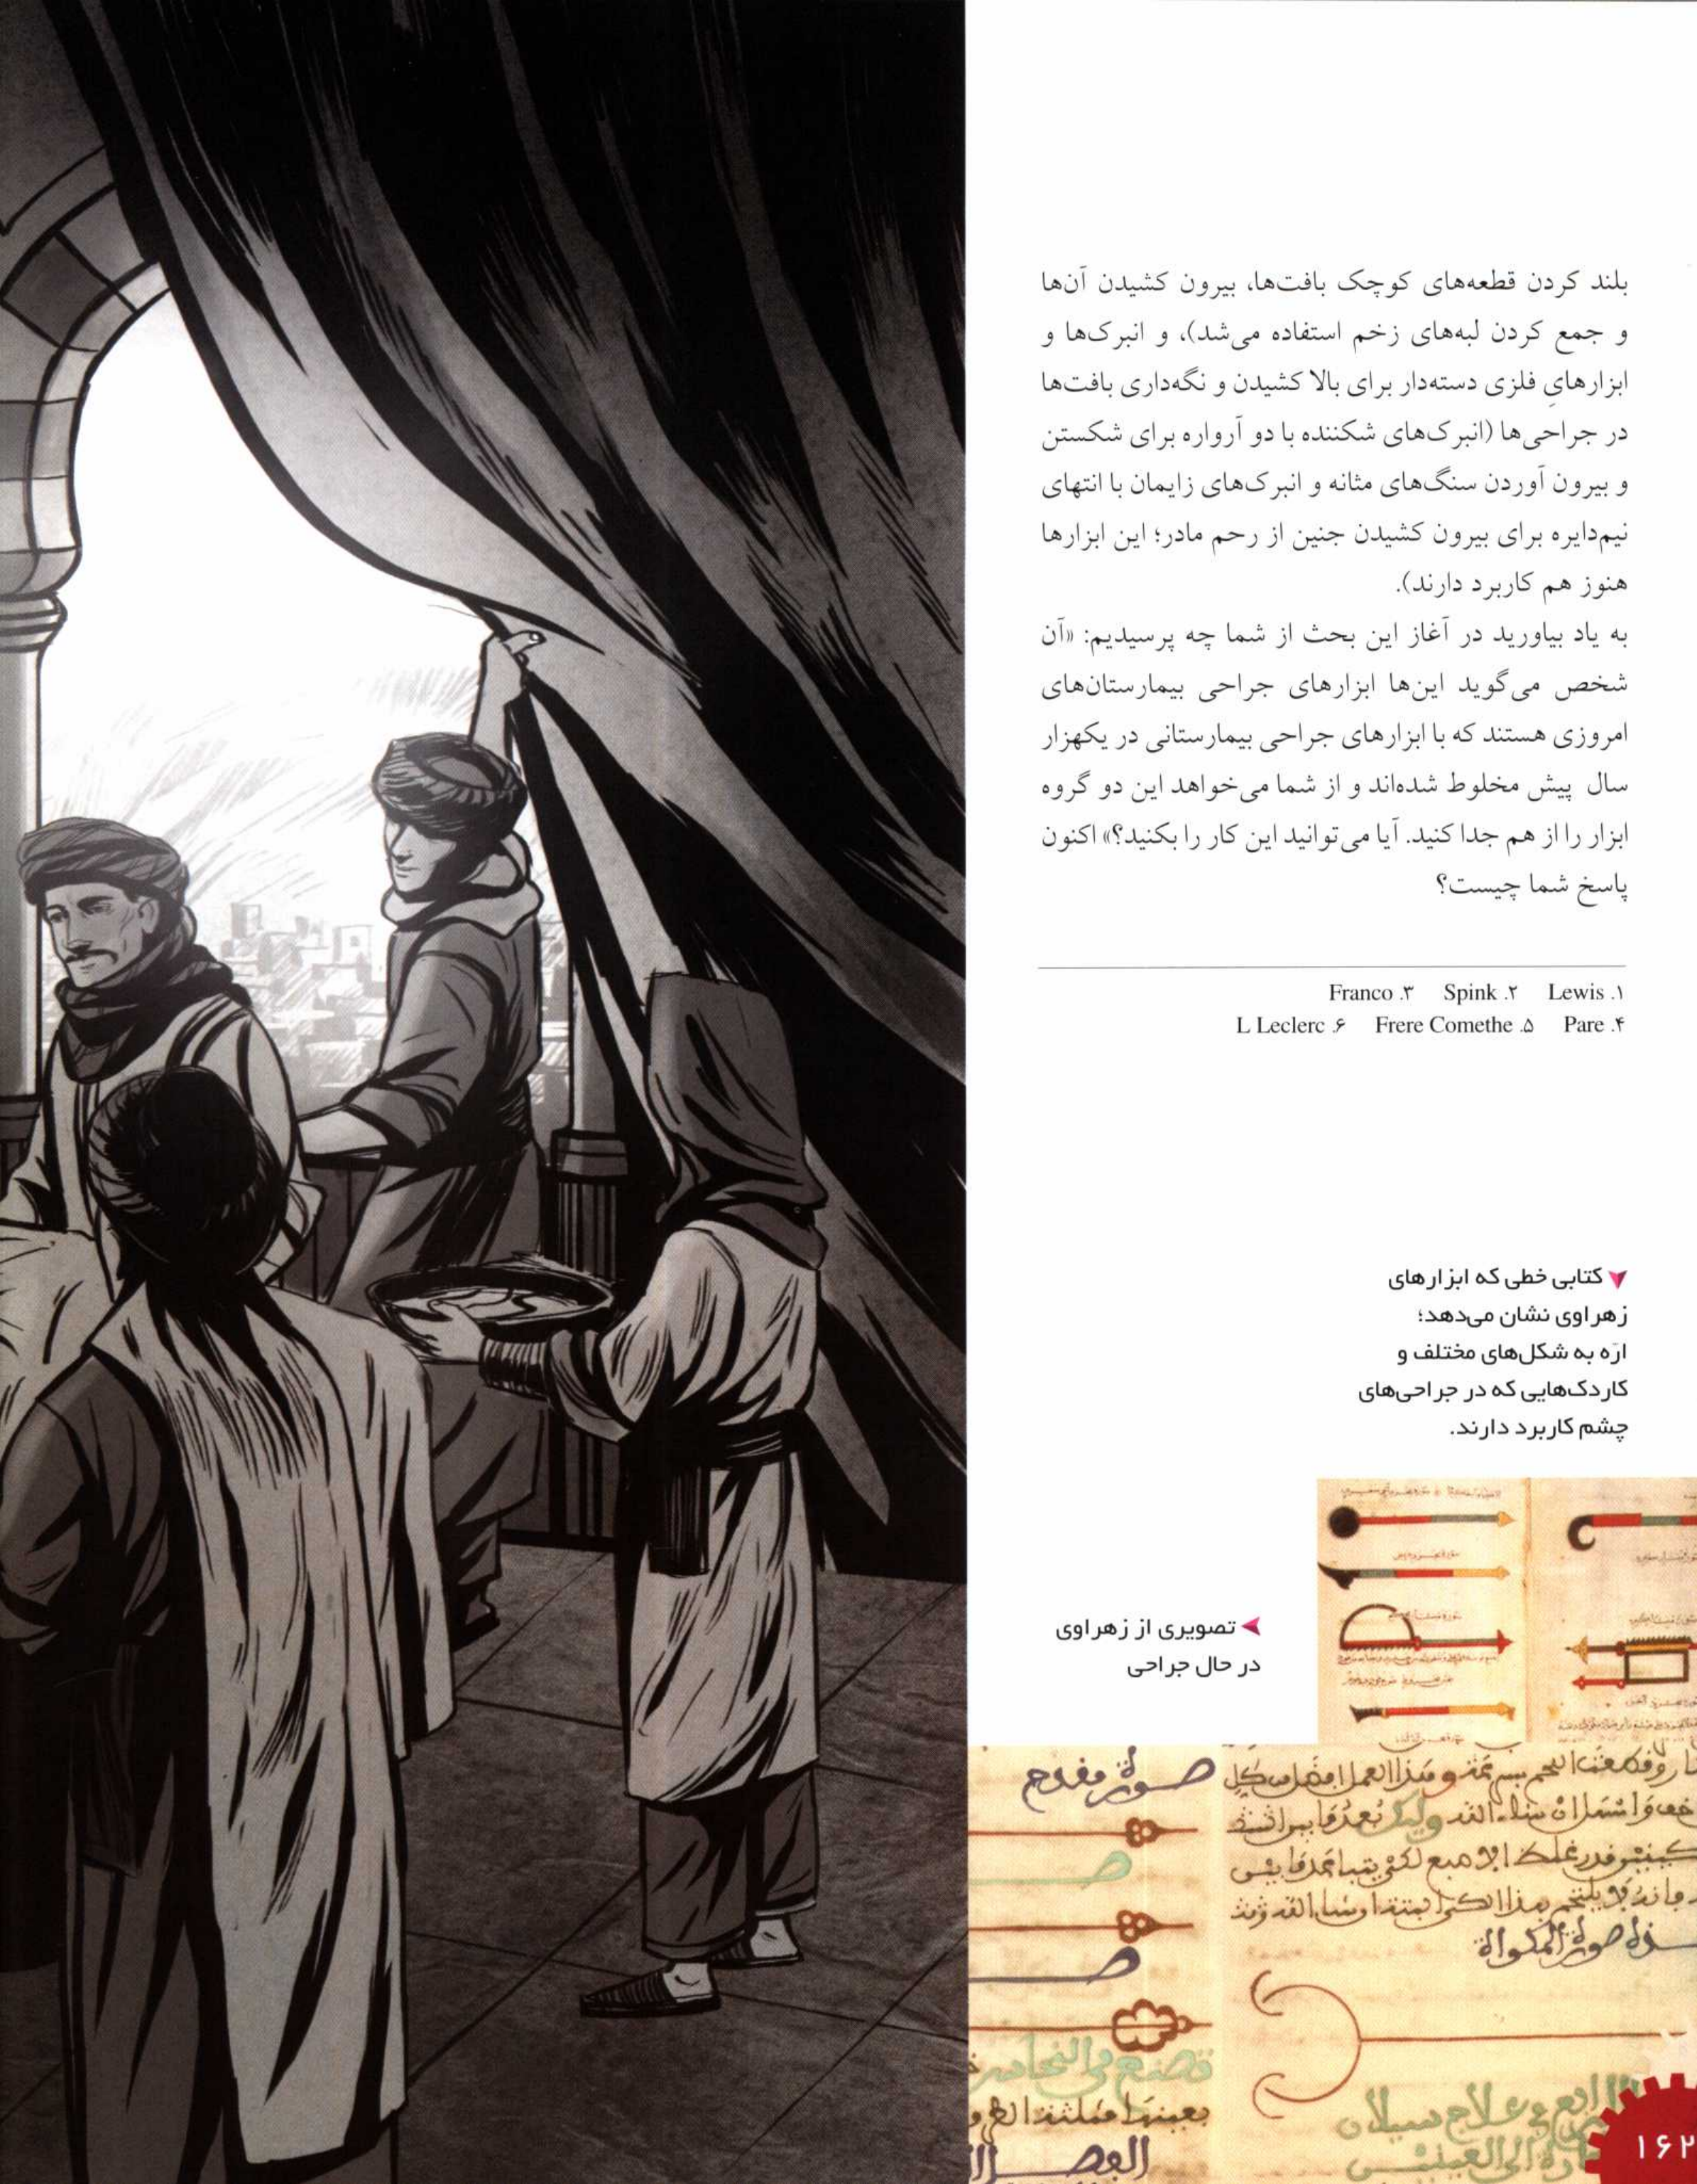 بلند کردن قطعه‌های کوچک بافت‌ها، بیرون کشیدن آن‌ها
و جمع کردن لبه‌های زخم استفاده می‌شد)، و انبرک‌ها و
ابزارهایِ فلزی دسته‌دار برای بالا کشیدن و نگه‌داری بافت‌ها
در جراحی‌ها (انبرک‌های شکننده با دو آرواره برای شکستن
و بیرون آوردن سنگ‌های مثانه و انبرک‌های زایمان با انتهای
نیم‌دایره برای بیرون کشیدن جنین از رحم مادر؛ این ابزارها
هنوز هم کاربرد دارند).
به یاد بیاورید در آغاز این بحث از شما چه پرسیدیم: «آن
شخص می‌گوید این‌ها ابزارهای جراحی بیمارستان‌های
امروزی هستند که با ابزارهای جراحی بیمارستانی در یکهزار
سال پیش مخلوط شده‌اند و از شما می‌خواهد این دو گروه
ابزار را از هم جدا کنید. آیا می‌توانید این کار را بکنید؟» اکنون
پاسخ شما چیست؟
۱. Lewis ۲. Spink ۳. Franco
۴. Pare ۵. Frere Comethe ۶. L Leclerc
کتابی خطی که ابزارهای
زهراوی نشان می‌دهد؛
ارّه به شکل‌های مختلف و
کاردک‌هایی که در جراحی‌های
چشم کاربرد دارند.
تصویری از زهراوی
در حال جراحی
صورة
صورة المكواة
۱۶۲